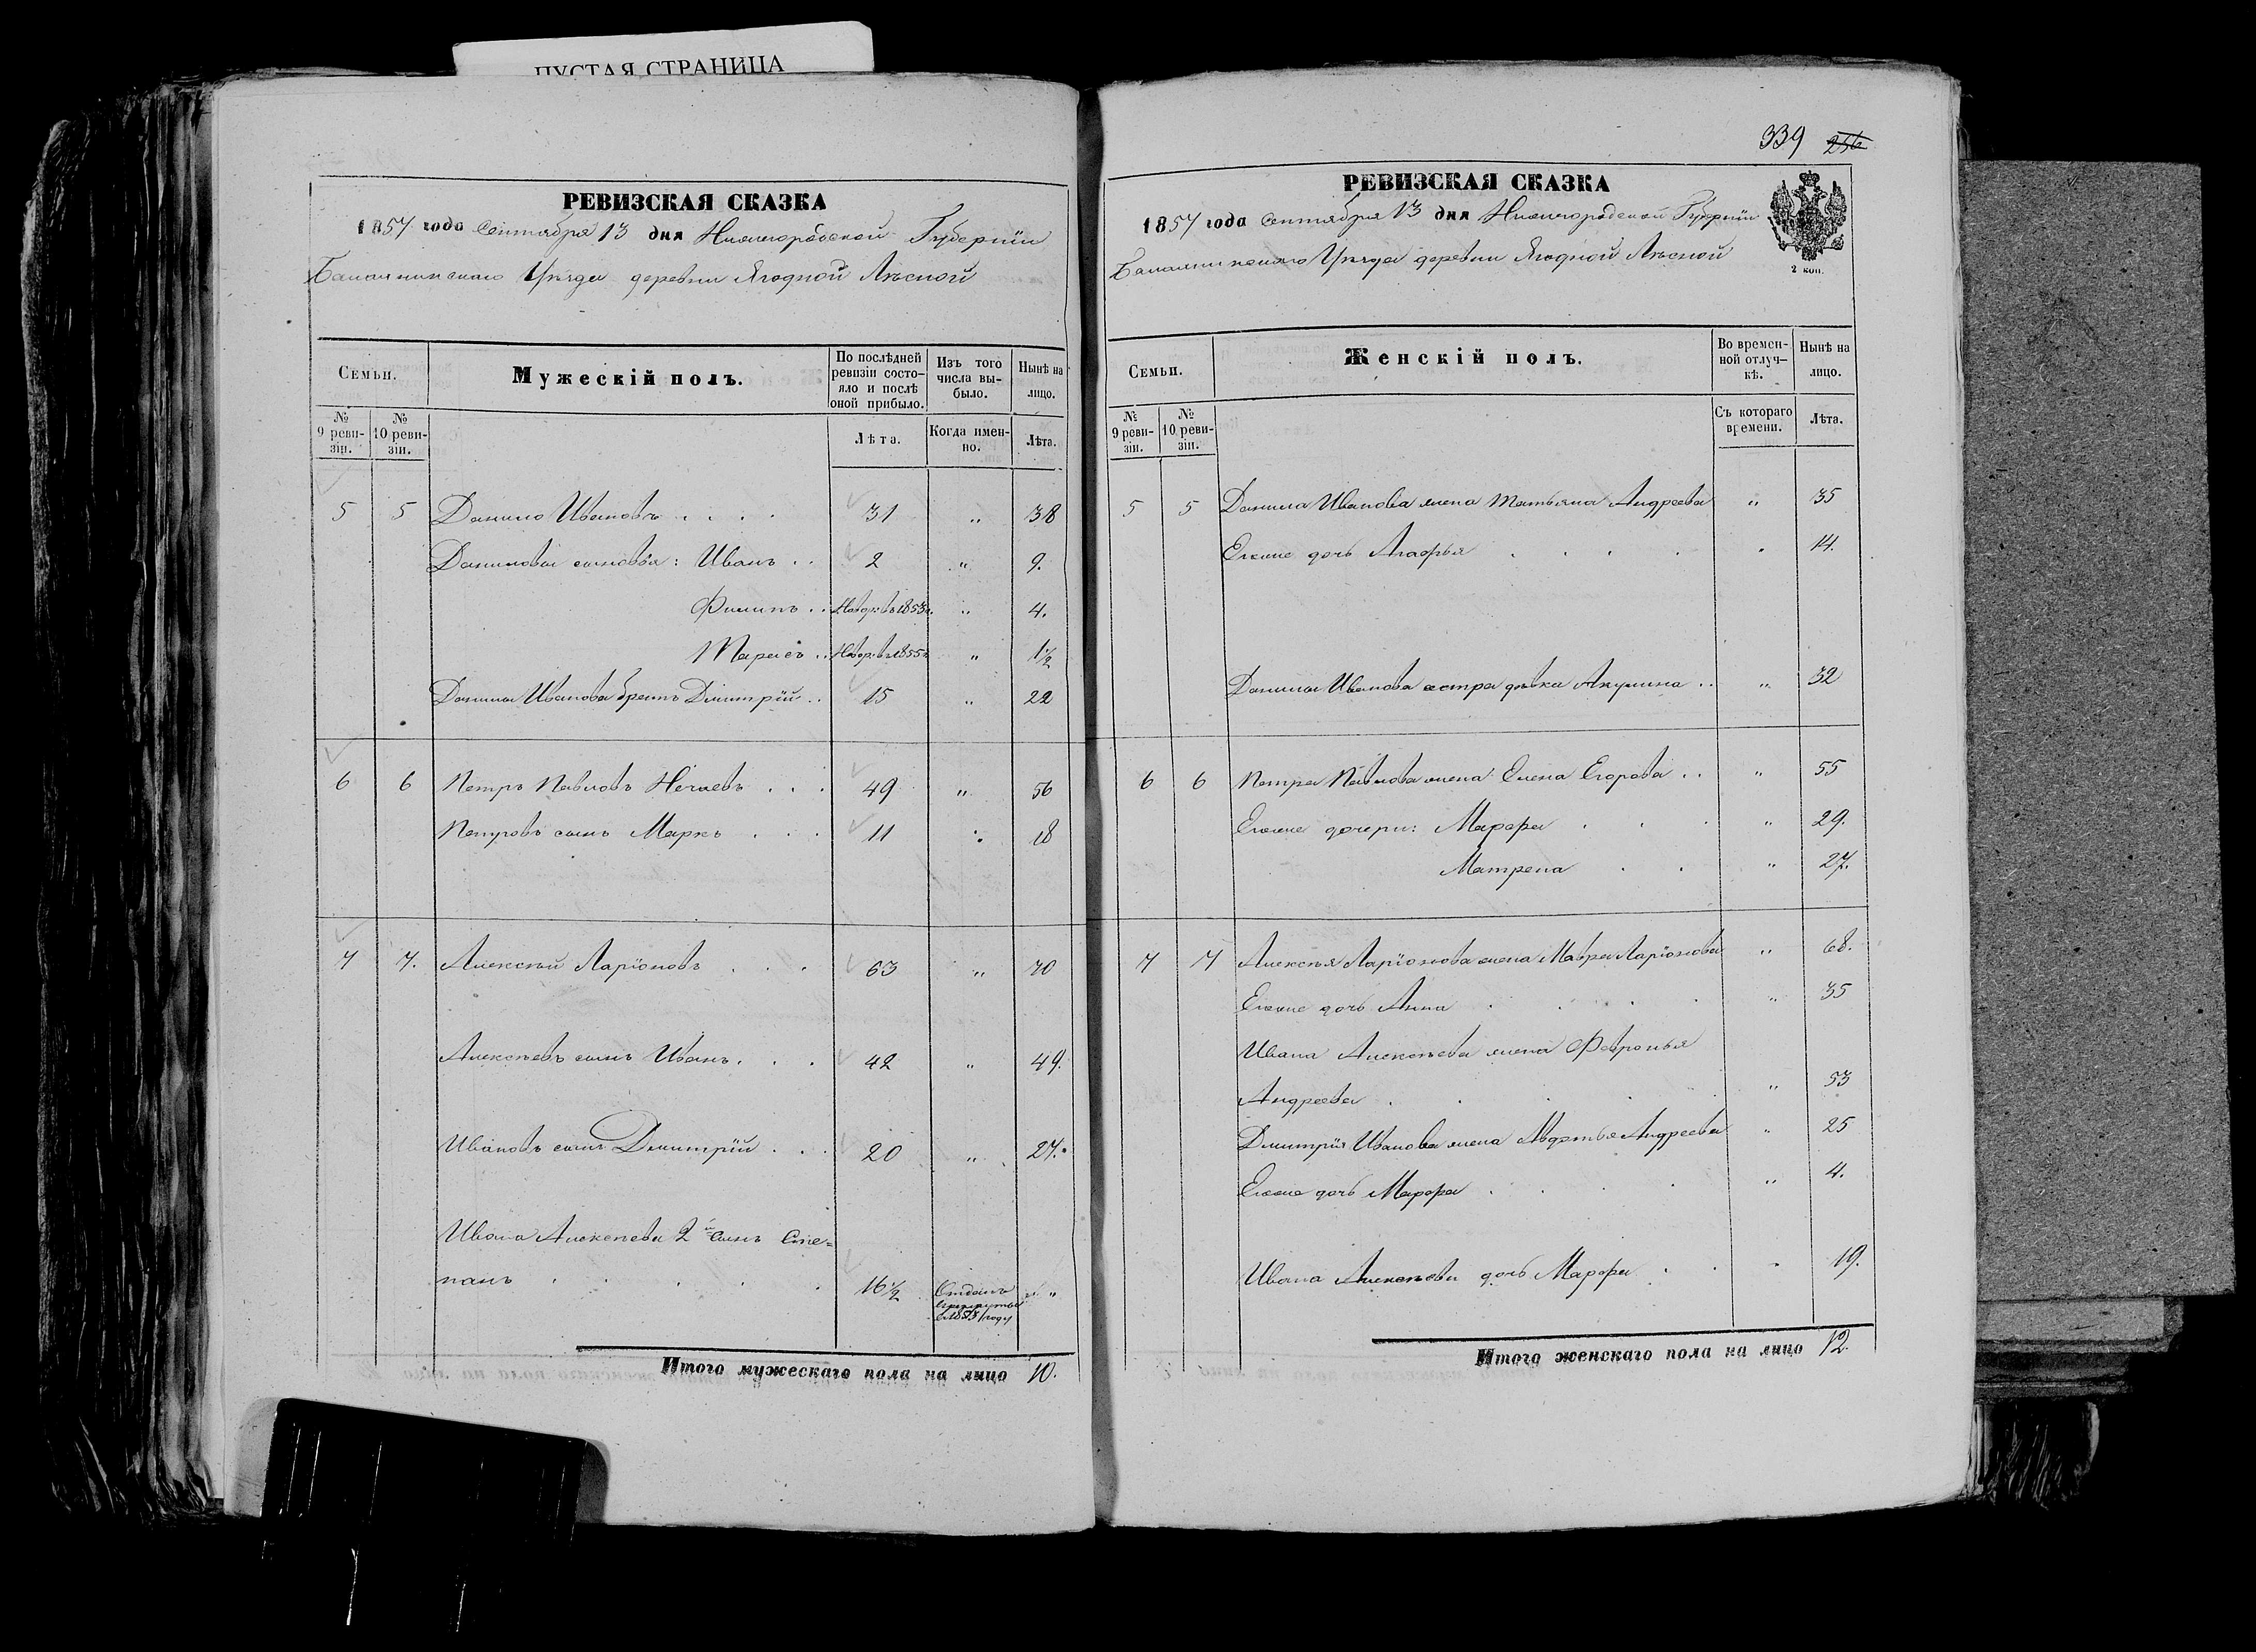 ПУСТАЯ СТРАНИЦА
РЕВИЗСКАЯ СКАЗКА
1857 года Сентября 13 дня Нижегородской Губернiи
Балахнинскаго Уѣзда деревни Ягодной Лѣсной
Семьи.
Мужескiй полъ.
По послѣдней ревизiи состо-
яло и послѣ
оной прибыло.
Изъ того
числа вы-
было.
Нынѣ на
лицо.
№
9 реви-
зiи.
№
10 реви-
зiи.
Лѣта.
Когда имен-
но.
Лѣта.
5 5 Данило Ивановъ . . . . 31 " 38
Данилова сыновья: Иванъ . . 2 " 9.
Филипъ . . Новорж. въ 1853 г. " 4.
Тарасъ . . Новор. въ 1855 г. " 1½
Данила Иванова братъ Дмитрiй . . 15 " 22
6 6 Петръ Павловъ Нечаевъ . . . 49 " 56
Петровъ сынъ Маркъ . . . 11 " 18
7 7. Алексѣй Ларiоновъ . . . 63 " 70
Алексѣевъ сынъ Иванъ . . . 42 " 49.
Ивановъ сынъ Дмитрiй . . . 20 " 27.
Ивана Алексѣева 2й сынъ Сте=
панъ . . . . . 16½ Отданъ " "
в рекруты
в 1853 году
Итого мужескаго пола на лицо 10.
339 256
РЕВИЗСКАЯ СКАЗКА
1857 года Сентября 13 дня Нижегородской Губернiи
Балахнинскаго Уѣзда деревни Ягодной Лѣсной
2 коп.
Семьи.
Женскiй полъ.
Во времен-
ной отлуч-
кѣ.
Нынѣ на
лицо.
№
9 реви-
зiи.
№
10 реви-
зiи.
Съ котораго
времени.
Лѣта.
5 5 Данила Иванова жена Татьяна Андреева " 35
Егоже дочь Агафья . . . . " 14.
Данилы Иванова сестра дѣвка Акулина . . " 32
6 6 Петра Павлова жена Елена Егорова . . " 55
Егоже дочери: Марфа . . . " 29.
Матрена . . " 27.
7 7 Алексѣя Ларiонова жена Мавра Ларiонова " 68.
Егоже дочь Анна . . . . " 35
Ивана Алексѣева жена Февронья
Андреева . . . . " 53
Дмитрiя Иванова жена Авдотья Андреева " 25
Егоже дочь Марфа . . . . " 4.
Ивана Алексѣева дочь Марфа . . " 19.
Итого женскаго пола на лицо 12.